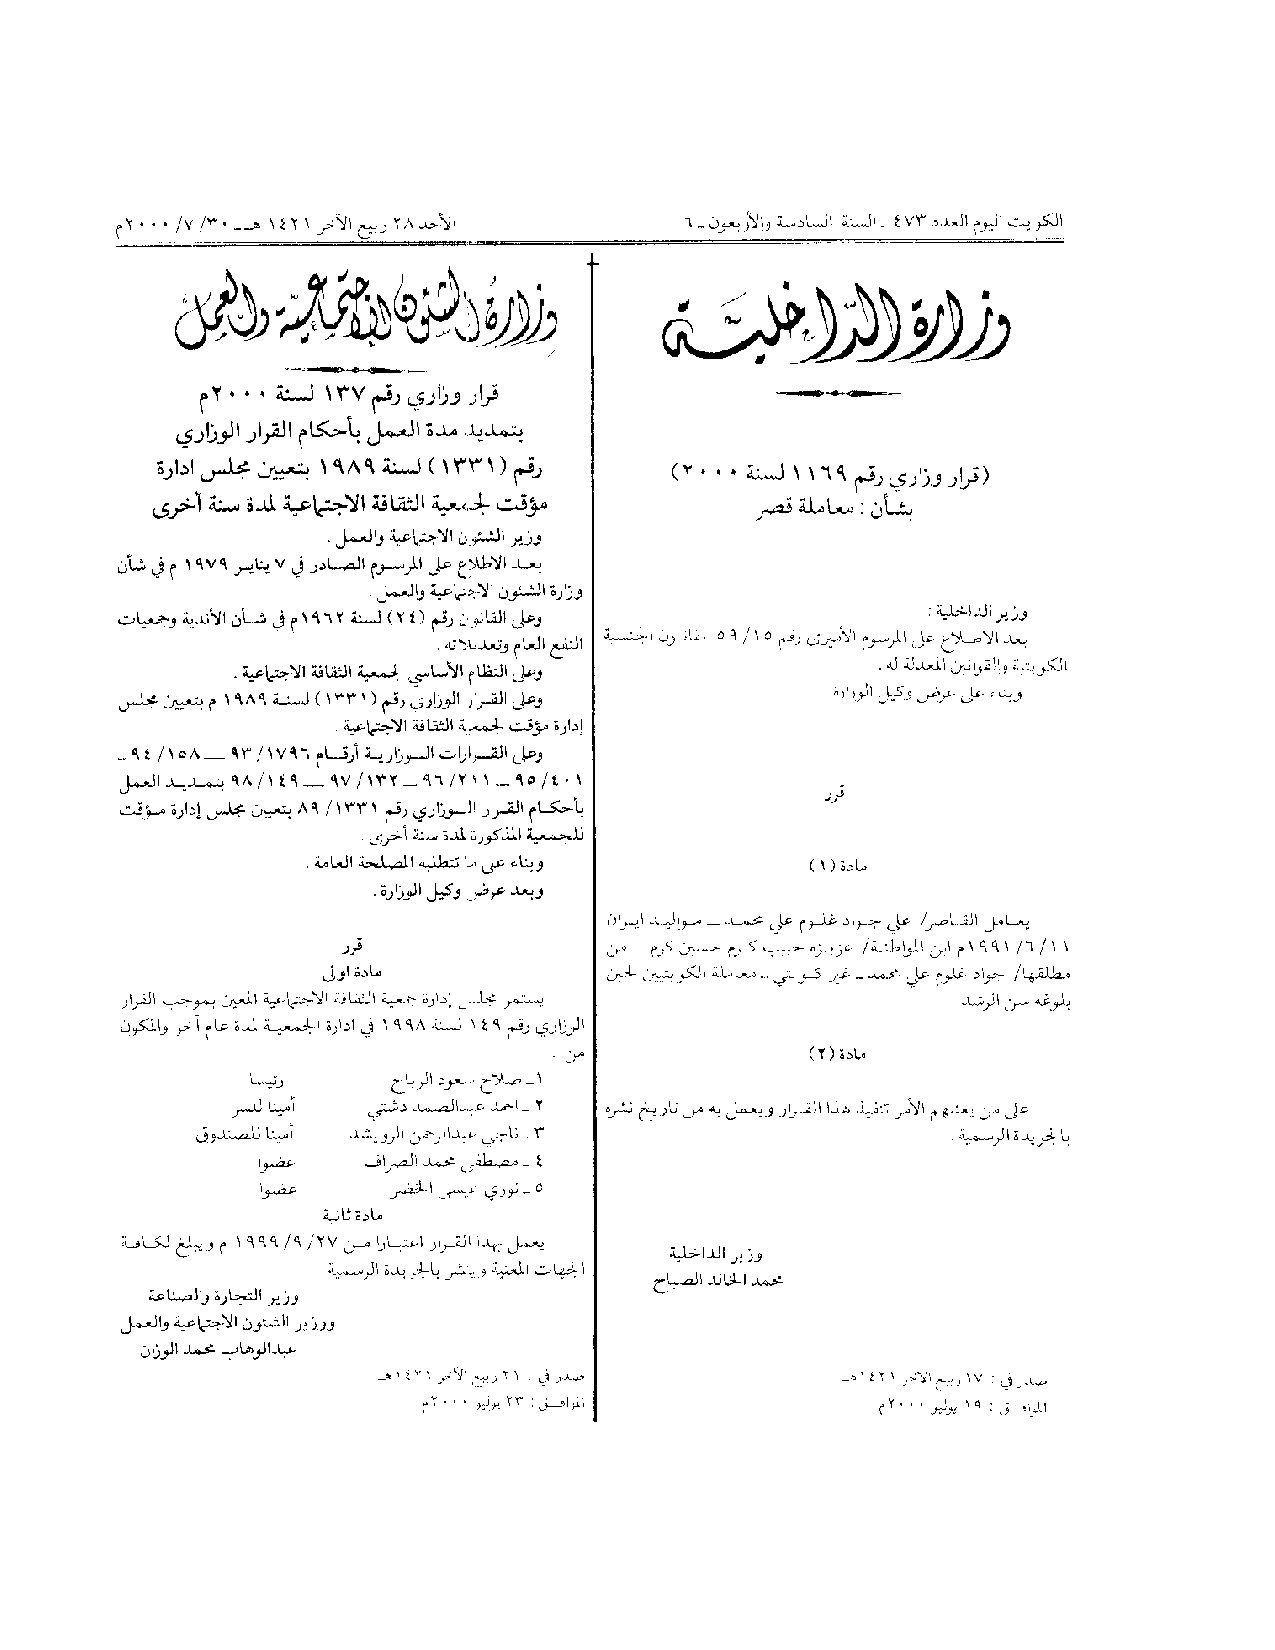 الكويت اليوم العدد ٤٧٣ - السنة السادسة والأربعون - ٦
الأحد ٢٨ ربيع الآخر ١٤٢١ هـ - ٣٠/ ٧/ ٢٠٠٠م
وزارة الداخلية
(قرار وزاري رقم ١١٦٩ لسنة ٢٠٠٠)
بشأن : معاملة قصر
وزير الداخلية :
بعد الاطلاع على المرسوم الأميري رقم ١٥/ ٥٩ بقانون الجنسية
الكويتية والقوانين المعدلة له .
وبناء على عرض وكيل الوزارة
قرر
مادة (١)
يعامل القاصر/ علي جواد غلوم علي محمد - مواليد ايران
١١/ ٦/ ١٩٩١م ابن المواطنة/ عزيزه حبيب كرم حسين كرم من
مطلقها/ جواد غلوم علي محمد - غير كويتي - معاملة الكويتيين لحين
بلوغه سن الرشد
مادة (٢)
على من يعنيهم الأمر تنفيذ هذا القرار ويعمل به من تاريخ نشره
بالجريدة الرسمية .
وزير الداخلية
محمد الخالد الصباح
صدر في : ١٧ ربيع الآخر ١٤٢١هـ
الموافق : ١٩ يوليو ٢٠٠٠م
وزارة الشئون الاجتماعية والعمل
قرار وزاري رقم ١٣٧ لسنة ٢٠٠٠م
بتمديد مدة العمل بأحكام القرار الوزاري
رقم (١٣٣١) لسنة ١٩٨٩ بتعيين مجلس ادارة
مؤقت لجمعية الثقافة الاجتماعية لمدة سنة أخرى
وزير الشئون الاجتماعية والعمل .
بعد الاطلاع على المرسوم الصادر في ٧ يناير ١٩٧٩ م في شأن
وزارة الشئون الاجتماعية والعمل .
وعلى القانون رقم (٢٤) لسنة ١٩٦٢م في شأن الأندية وجمعيات
النفع العام وتعديلاته .
وعلى النظام الأساسي لجمعية الثقافة الاجتماعية .
وعلى القرار الوزاري رقم (١٣٣١) لسنة ١٩٨٩ م بتعيين مجلس
إدارة مؤقت لجمعية الثقافة الاجتماعية .
وعلى القرارات الوزارية أرقام ١٧٩٦/ ٩٣ - ١٥٨/ ٩٤ -
٤٠١/ ٩٥ - ٢١١/ ٩٦ - ١٣٢/ ٩٧ - ١٤٩/ ٩٨ بتمديد العمل
بأحكام القرر الوزاري رقم ١٣٣١/ ٨٩ بتعيين مجلس إدارة مؤقت
للجمعية المذكورة لمدة سنة أخرى .
وبناء على ما تتطلبه المصلحة العامة .
وبعد عرض وكيل الوزارة .
قرر
مادة اولى
يستمر مجلس إدارة جمعية الثقافة الاجتماعية المعين بموجب القرار
الوزاري رقم ١٤٩ لسنة ١٩٩٨ في ادارة الجمعية لمدة عام آخر والمكون
من .
١ - صلاح سعود الرباح رئيسا
٢ - احمد عبدالصمد دشتي أمينا للسر
٣ - ناجي عبدالرحمن الرويشد أمينا للصندوق
٤ - مصطفى محمد الصراف عضوا
٥ - نوري عيسى الخضر عضوا
مادة ثانية
يعمل بهذا القرار اعتبارا من ٢٧/ ٩/ ١٩٩٩ م ويبلغ لكافة
الجهات المعنية وينشر بالجريدة الرسمية
وزير التجارة والصناعة
ووزير الشئون الاجتماعية والعمل
عبدالوهاب محمد الوزان
صدر في : ٢١ ربيع الآخر ١٤٢١هـ
الموافق : ٢٣ يوليو ٢٠٠٠م